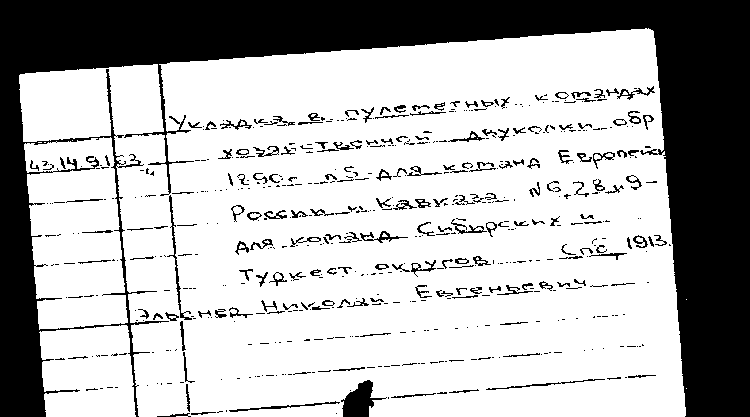 Укладка в пулеметных командах
хозяйственной двуколки обр
43.14.9.163
1890г. N5-для команд Европейск
России и Кавказа N6,7,8 и 9-
для команд Сибирских и
Туркест округов Спб, 1913.
Эльснер, Николай Евгеньевич